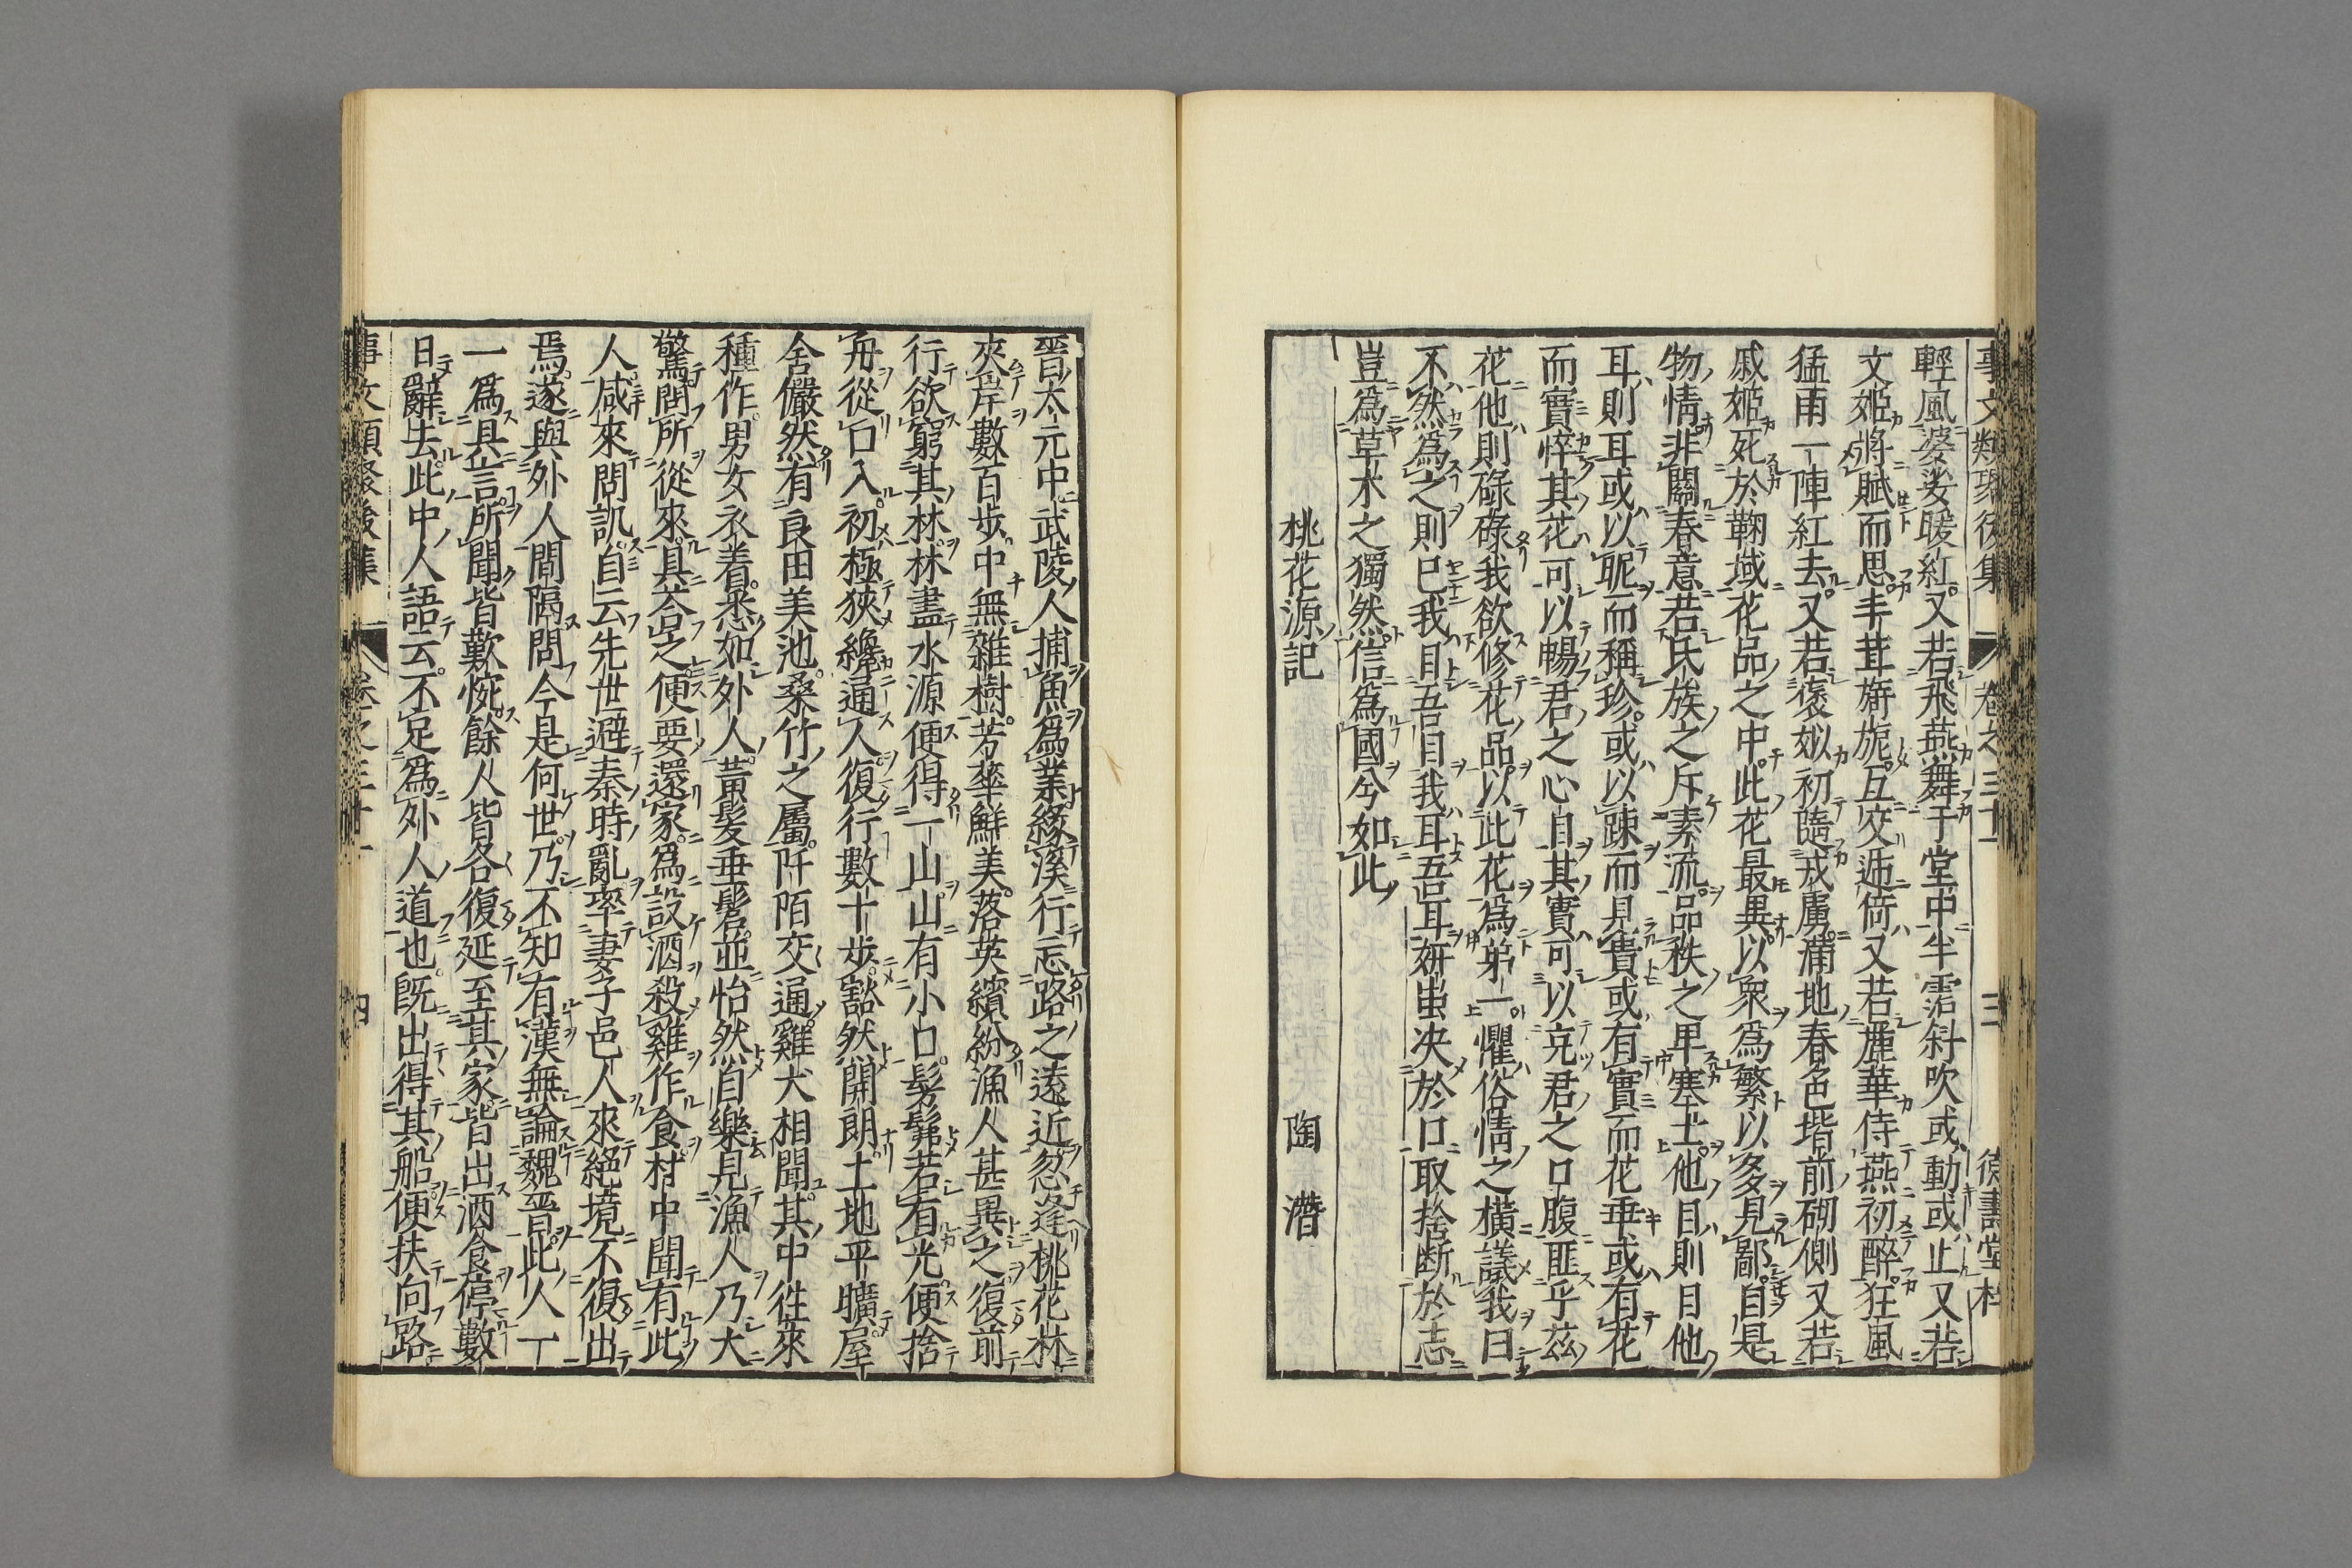 事文類聚後集 卷之三十一 三 德壽堂梓
輕風婆娑暖紅又若飛燕舞于堂中半霑斜吹或動或止又若
文姬將賦而思丰茸旖旎互交遞倚又若麗華侍燕初醉狂風
猛雨一陣紅去又若褒姒初隨戎虜滿地春色堦前砌側又若
戚姬死於鞠域花品之中此花最異以衆爲繁以多見鄙自是
物情非關春意若氏族之斥素流品秩之卑塞士他目則目他
耳則耳或以昵而稱珍或以疎而見貴或有實而花乖或有花
而實悴其花可以暢君之心目其實可以充君之口腹匪乎茲
花他則碌碌我欲修花品以此花爲弟一懼俗情之橫議我曰
不然爲之則已我目吾目我耳吾耳妍蚩决於口取捨断於志
豈爲草木之獨然信爲國兮如此
桃花源記 陶潛
晉太元中武陵人捕魚爲業緣溪行忘路之遠近忽逢桃花林
夾岸數百步中無雜樹芳華鮮美落英繽紛漁人甚異之復前
行欲窮其林林盡水源便得一山山有小口髣髴若有光便捨
舟從口入初極狹纔通人復行數十步豁然開朗土地平曠屋
舍儼然有良田美池桑竹之屬阡陌交通雞犬相聞其中徃來
種作男女衣着悉如外人黃髮垂髫並怡然自樂見漁人乃大
驚問所從來具荅之便要還家爲設酒殺雞作食村中聞有此
人咸來問訊自云先世避秦時亂率妻子邑人來絕境不復出
焉遂與外人間隔問今是何世乃不知有漢無論魏晉此人一
一爲具言所聞皆歎惋餘人皆各復延至其家皆出酒食停數
日辭去此中人語云不足爲外人道也旣出得其船便扶向路
事文類聚後集 卷之三十一 四